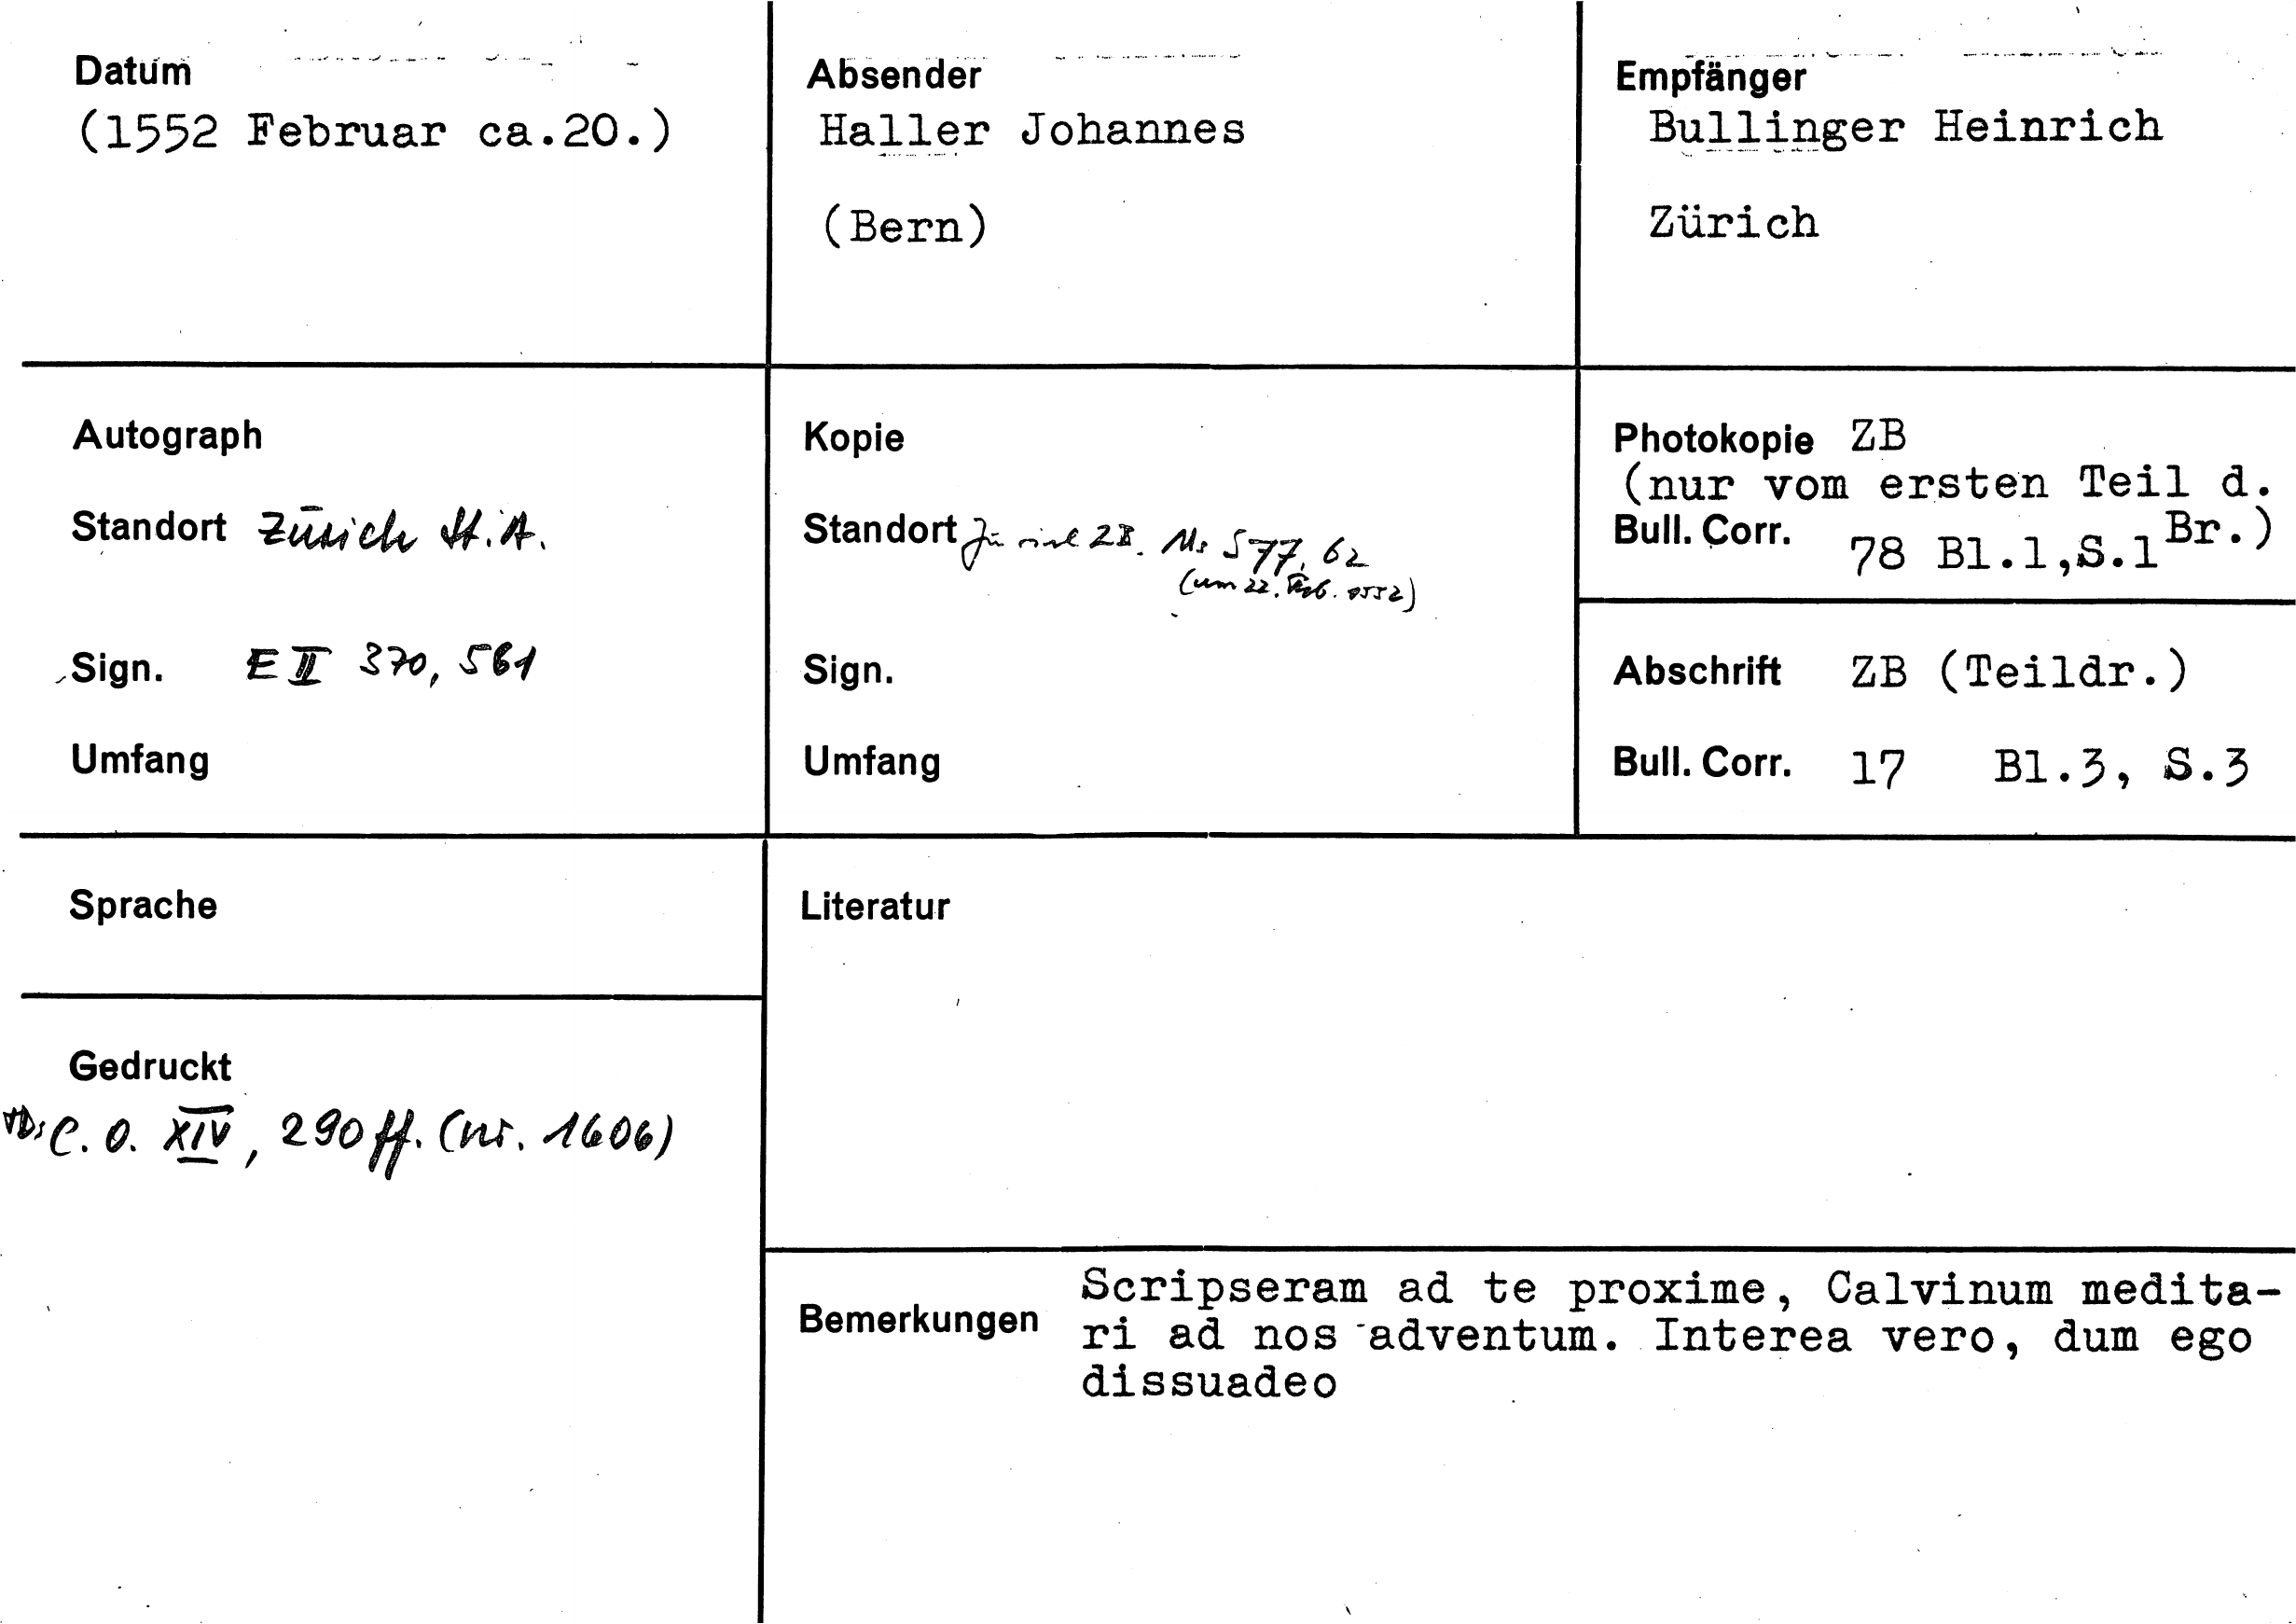 Datum
(1552 Februar ca.20.)
Absender
Haller Johannes
(Bern)
Empfänger
Bullinger Heinrich
Zürich
Autograph
Standort Zürich St.A.
Sign. E II 370, 561
Umfang
Kopie
Standort Zürich ZB. Ms S 77, 62
(um 22. Feb. 1552)
Sign.
Umfang
Photokopie ZB
(nur vom ersten Teil d.
Br.)
Bull. Corr. 78 Bl.1,S.1
Abschrift ZB (Teildr.)
Bull. Corr. 17 Bl.3, S.3
Sprache
Literatur
Gedruckt
C.O. XIV, 290 ff. (nr. 1606)
Bemerkungen
Scripseram ad te proxime, Calvinum medita-
ri ad nos adventum. Interea vero, dum ego
dissuadeo